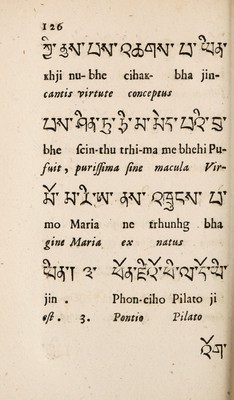 126
ཀྱི་ནུས་པས་འཆགས་པ་ཡིན་
khji nu-bhe cihak- bha jin-
cantis virtute conceptus
པས་ཤིན་ཏུ་དྲི་མ་མེད་པའི་བུ་
bhe scin-thu trhi-ma me bhehi Pu-
fuit, purissima sine macula Vir-
མོ་མ་རི་ཨ་ནས་འཁྲུངས་པ་
mo Maria ne trhunhg bha
gine Maria ex natus
ཡིན། ༣་
jin . Phon-ciho Pilato ji
est . 3. Pontio Pilato